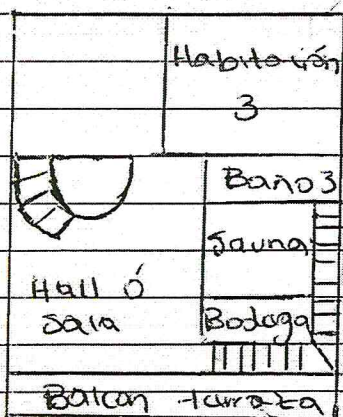 Habitación
3
Baño 3
Sauna
Hall Ó
Sala
Bodega
Balcon terraza